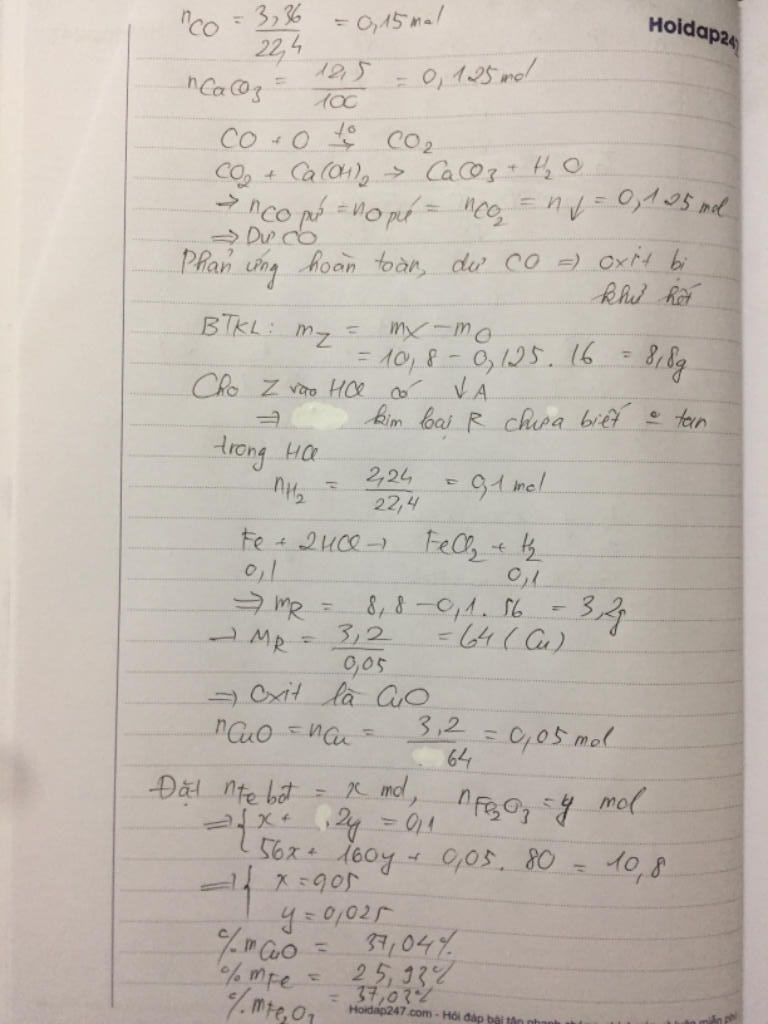 nCO = 3,36 / 22,4 = 0,15 mol
Hoidap247
nCaCO3 = 12,5 / 100 = 0,125 mol
CO + O t° → CO2
CO2 + Ca(OH)2 → CaCO3 + H2O
→ nCO pứ = nO pứ = nCO2 = n↓ = 0,125 mol
⇒ Dư CO
Phản ứng hoàn toàn, dư CO ⇒ oxit bị
khử hết
BTKL: mZ = mX − mO
= 10,8 − 0,125 . 16 = 8,8g
Cho Z vào HCl có ↓ A
⇒ kim loại R chưa biết o tan
trong HCl
nH2 = 2,24 / 22,4 = 0,1 mol
Fe + 2HCl → FeCl2 + H2
0,1 0,1
⇒ mR = 8,8 − 0,1 . 56 = 3,2g
→ MR = 3,2 / 0,05 = 64 (Cu)
⇒ Oxit là CuO
nCuO = nCu = 3,2 / 64 = 0,05 mol
Đặt nFe bđ = x mol, nFe2O3 = y mol
⇒ { x + 2y = 0,1
56x + 160y + 0,05 . 80 = 10,8
⇒ { x = 0,05
y = 0,025
%mCuO = 37,04%
%mFe = 25,93%
%mFe2O3 = 37,03%
Hoidap247.com - Hỏi đáp bài tập nhanh